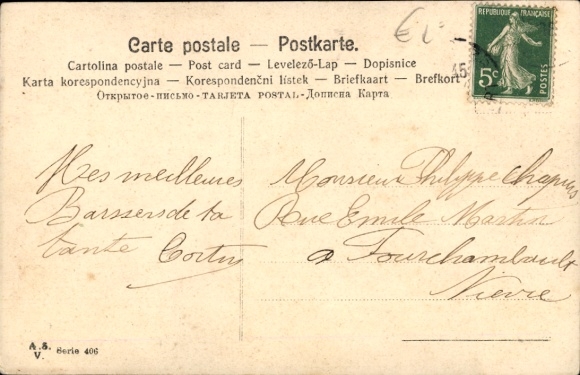 Carte postale — Postkarte.
Cartolina postale — Post card — Levelező-Lap — Dopisnice
Karta korespondencyjna — Korespondenční lístek — Briefkaart — Brefkort
Открытое-письмо-TARJETA POSTAL-Дописна Карта
REPUBLIQUE FRANÇAISE
5c
POSTES
45
Mes meilleures
Barssers de ta
tante
Monsieur Philippe Chapuis
Rue Emile Martin
a Fourchambault
Nievre
A.S.
V. Serie 406